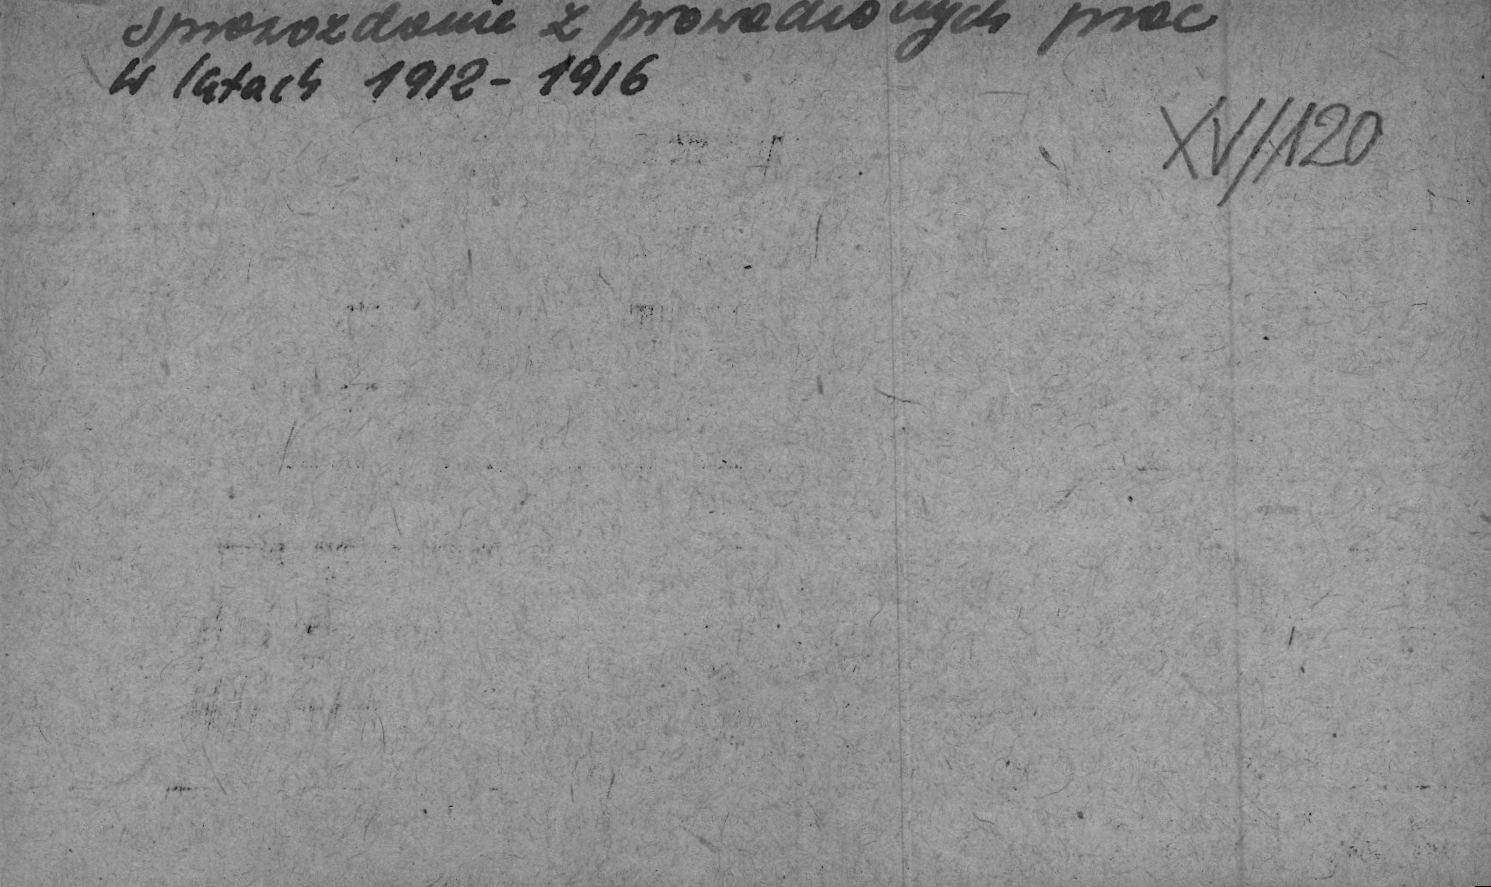 Sprawozdanie z prowadzonych prac
w latach 1912-1916
XV/120